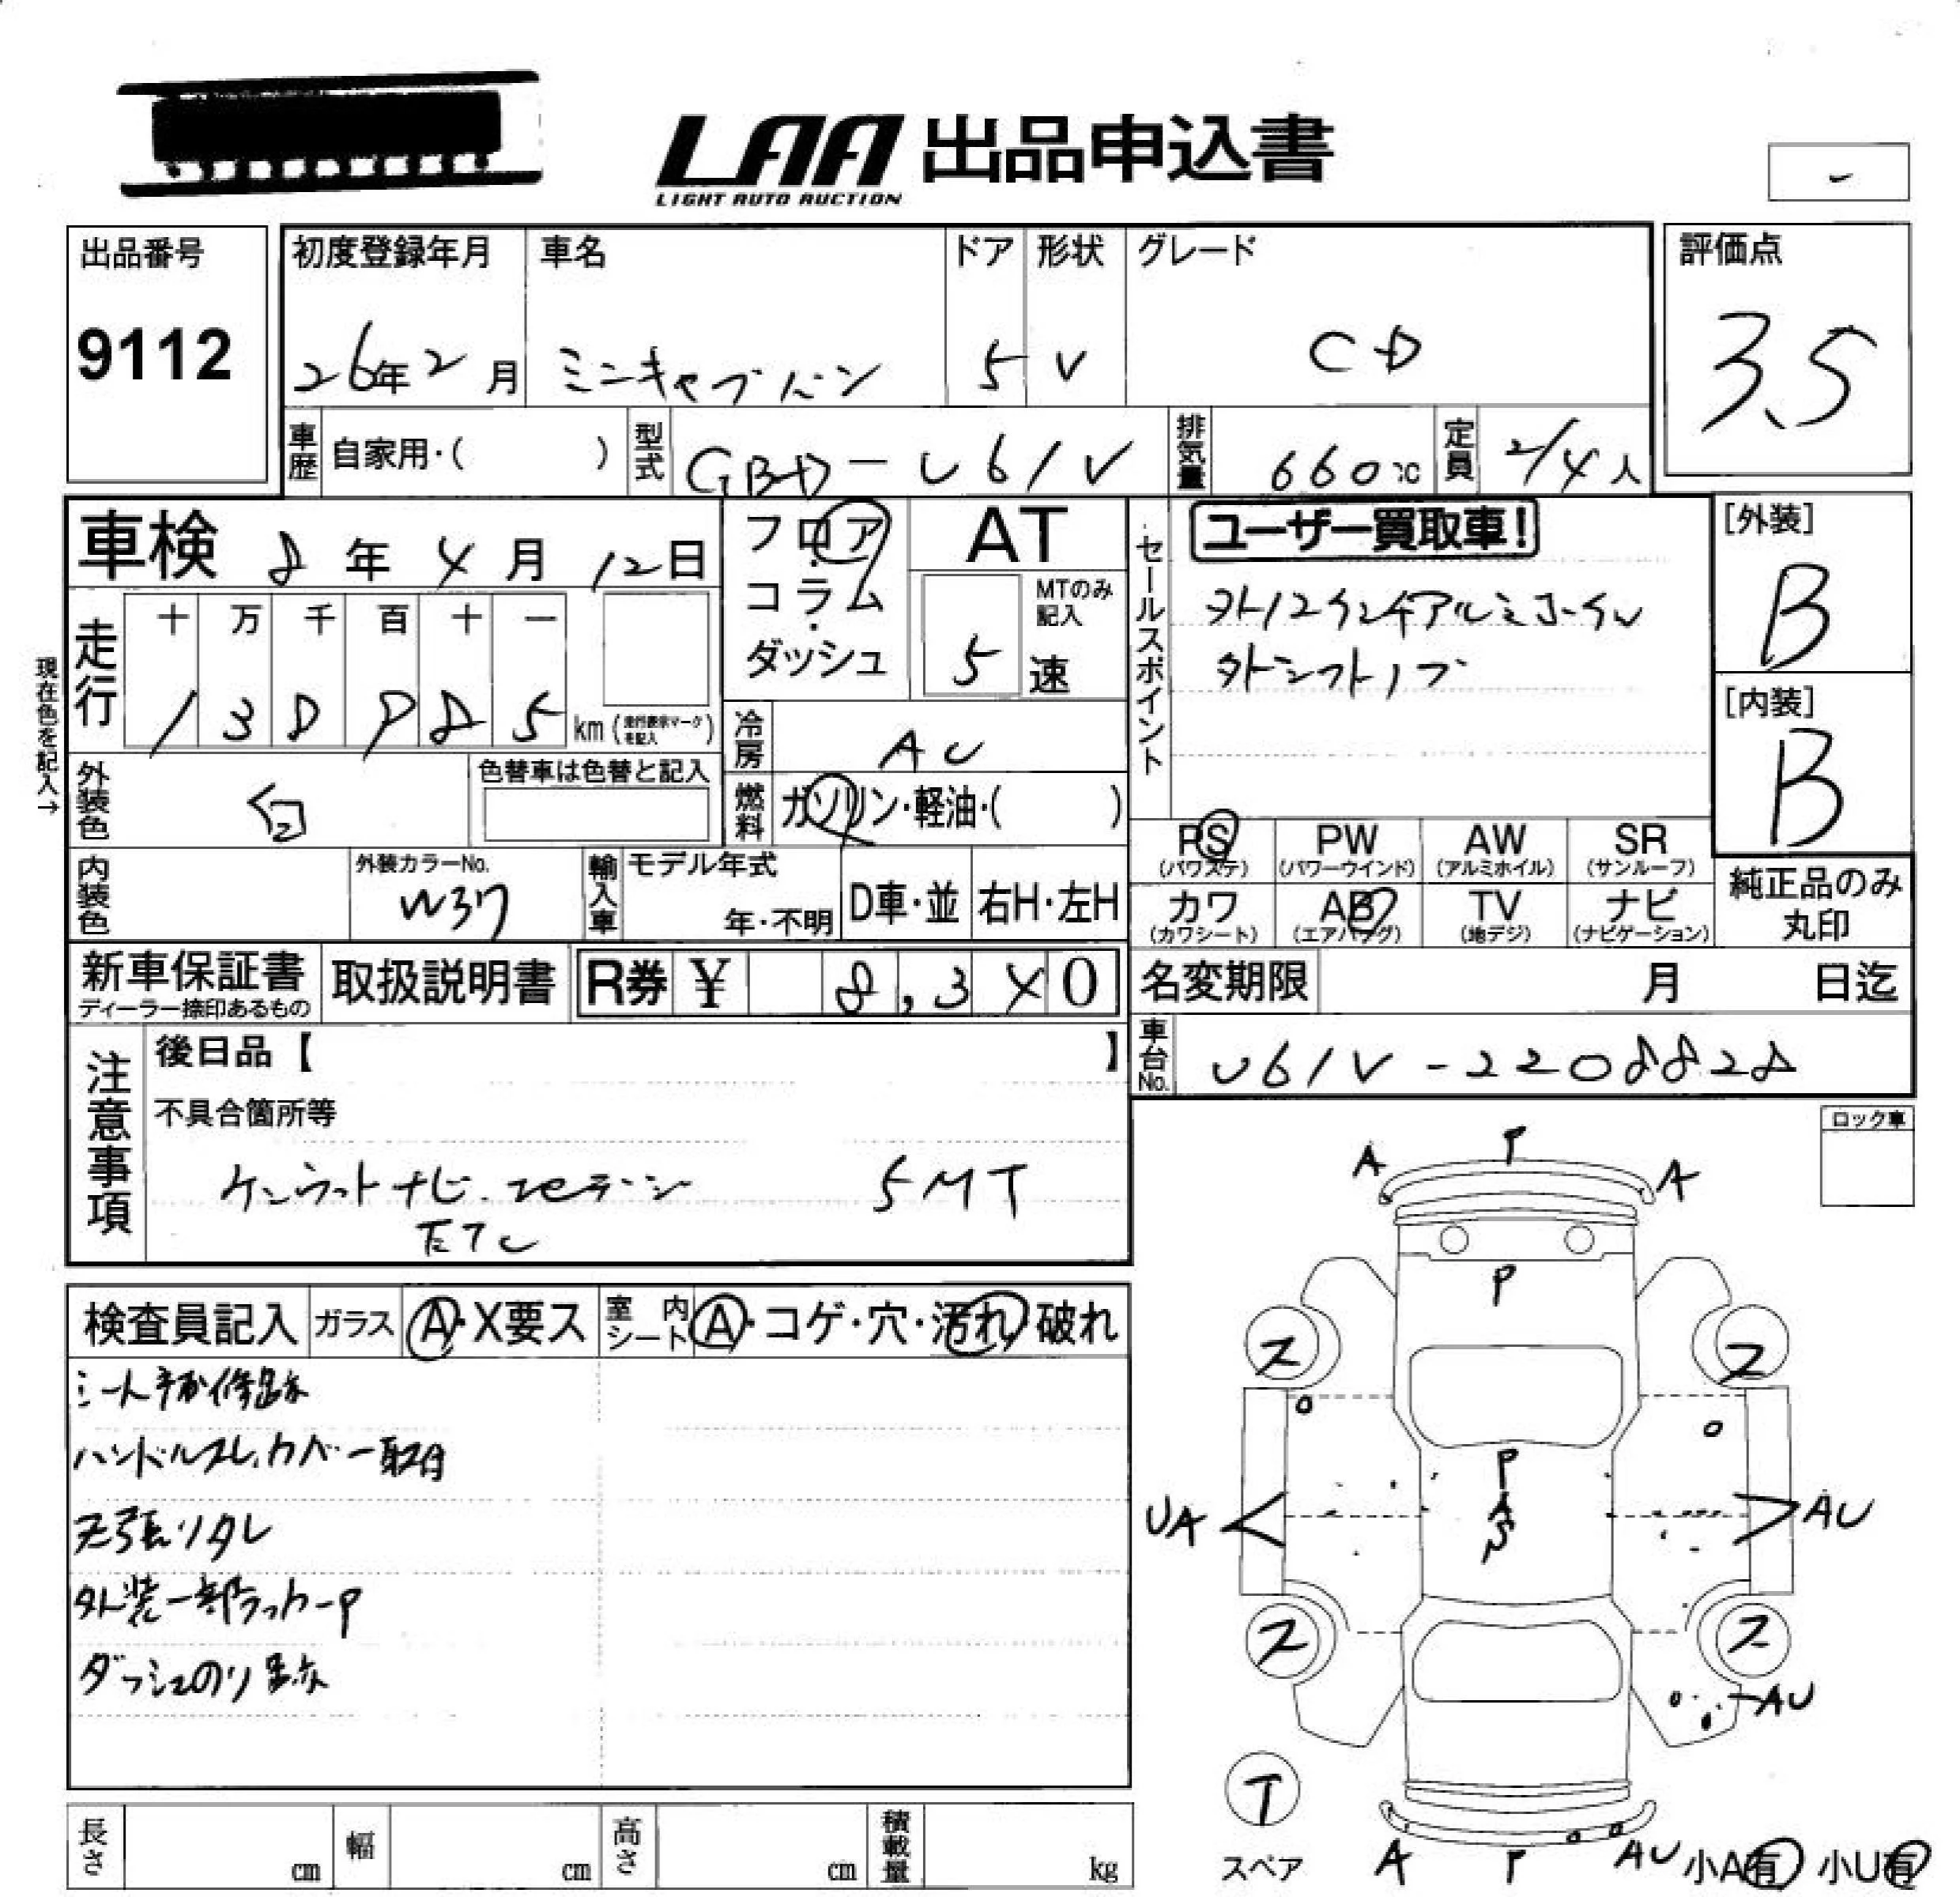 LAA 出品申込書
LIGHT AUTO AUCTION
-
出品番号
9112
初度登録年月
26年2月
車名
ミニキャブバン
ドア
5
形状
V
グレード
CD
評価点
3.5
車歴 自家用・( )
型式 GBD-U61V
排気量 660cc
定員 2/4人
車検 8年4月12日
フロア・コラム・ダッシュ
AT
MTのみ記入
5速
セールスポイント
ユーザー買取車!
外12インチアルミホイル
外シフトノブ
[外装]
B
[内装]
B
現在色を記入→
走行 十 万 千 百 十 一
138985 km (走行表示マークを記入)
冷房 AC
外装色 白
色替車は色替と記入
燃料 ガソリン・軽油・( )
PS (パワステ)
PW (パワーウインド)
AW (アルミホイル)
SR (サンルーフ)
カワ (カワシート)
AB (エアバッグ)
TV (地デジ)
ナビ (ナビゲーション)
純正品のみ丸印
内装色
外装カラーNo.
W37
輸入車
モデル年式
年・不明
D車・並
右H・左H
新車保証書
ディーラー捺印あるもの
取扱説明書
R券 ¥ 8,340
名変期限 月 日迄
車台No. U61V-2208828
注意事項
後日品【 】
不具合箇所等
ケンウッドナビ. 5MT
ETC
ロック車
検査員記入
ガラス A・X要ス
室内シート A・コゲ・穴・汚れ 破れ
ハンドルスレ、カバー取付
天張リタレ
外装一部ラッカーP
ダッシュのり跡
A P A
P
ス ス
P
A
UA AU
ス ス
AU
T
スペア
A P AU
小A有 小U有
長さ cm
幅 cm
高さ cm
積載量 kg